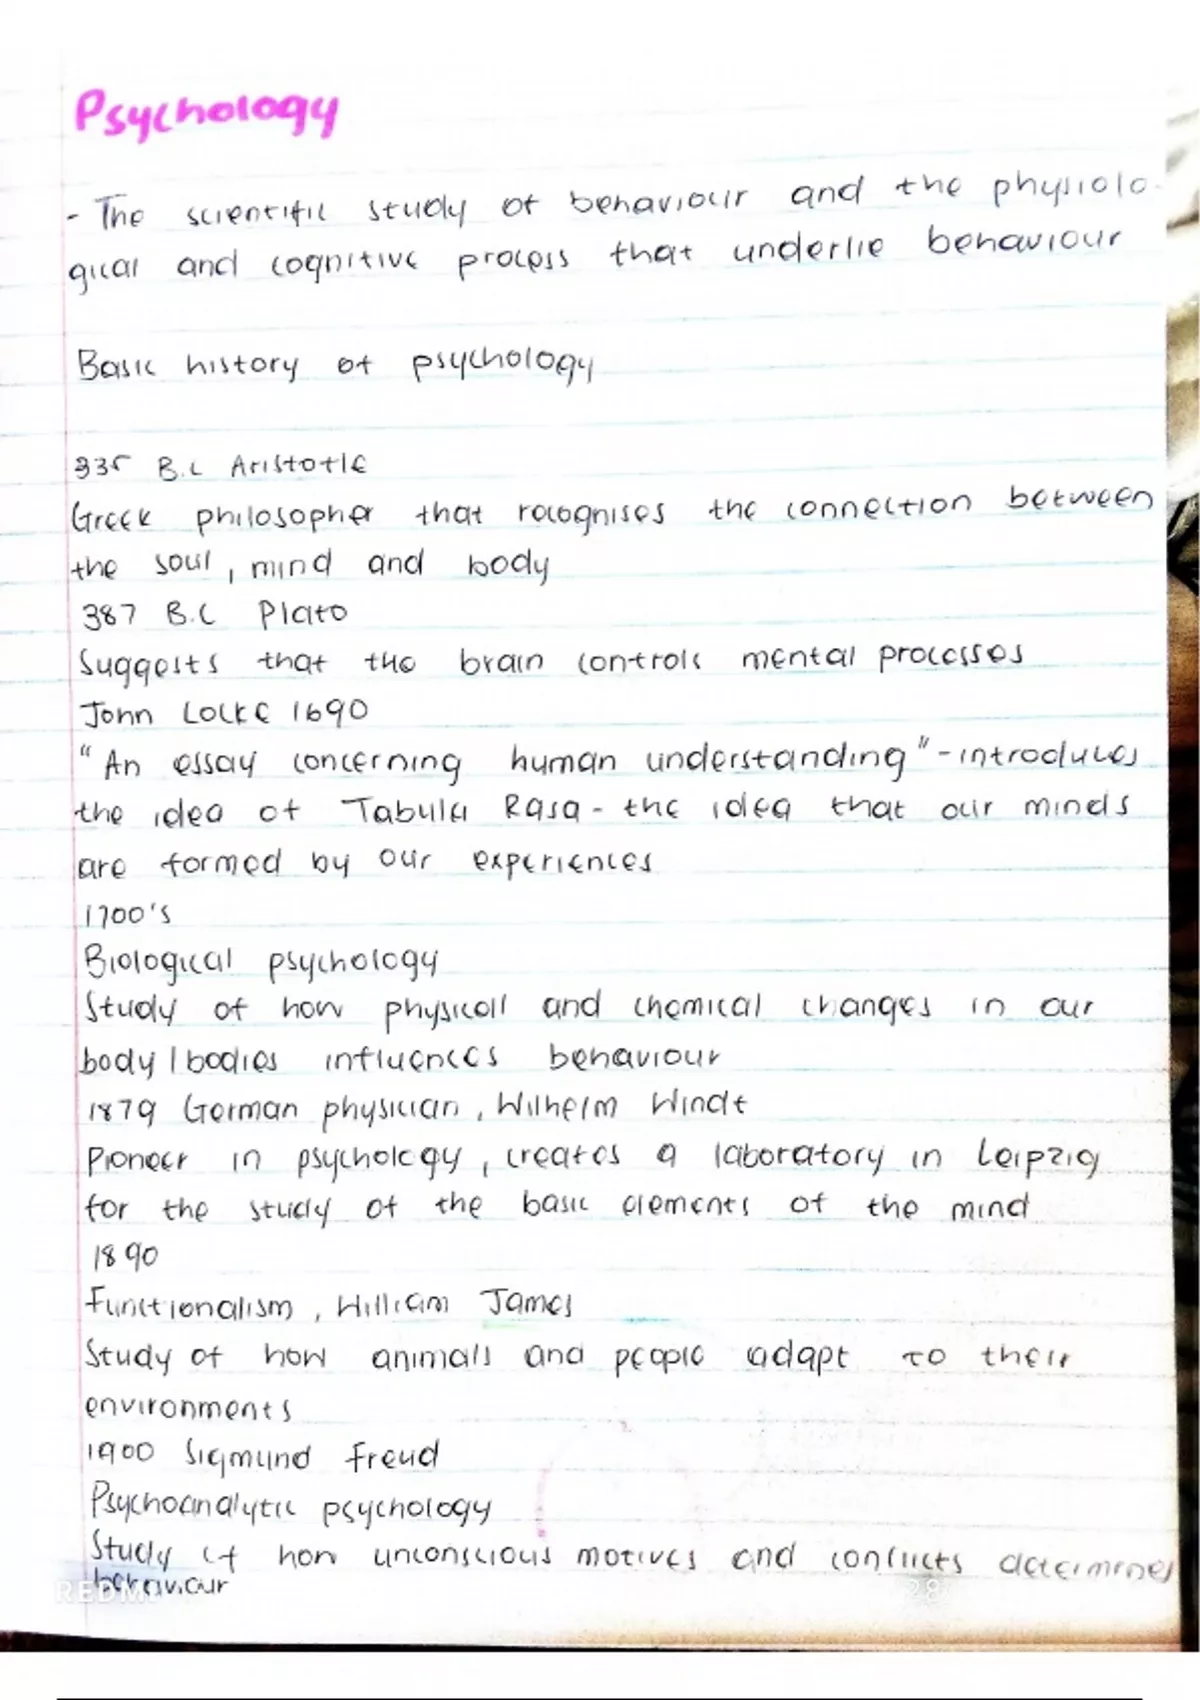 Psychology
- The scientific study of behaviour and the physiolo-
gical and cognitive process that underlie behaviour
Basic history of psychology
335 B.C Aristotle
Greek philosopher that recognises the connection between
the soul, mind and body
387 B.C Plato
Suggests that the brain controls mental processes
John Locke 1690
"An essay concerning human understanding" - introduces
the idea of Tabula Rasa - the idea that our minds
are formed by our experiences
1700's
Biological psychology
Study of how physicall and chemical changes in our
body / bodies influences behaviour
1879 German physician, Wilhelm Windt
Pioneer in psychology, creates a laboratory in Leipzig
for the study of the basic elements of the mind
1890
Functionalism, William James
Study of how animals and people adapt to their
environments
1900 Sigmund Freud
Psychoanalytic psychology
Study of how unconscious motives and conflicts determines
behaviour